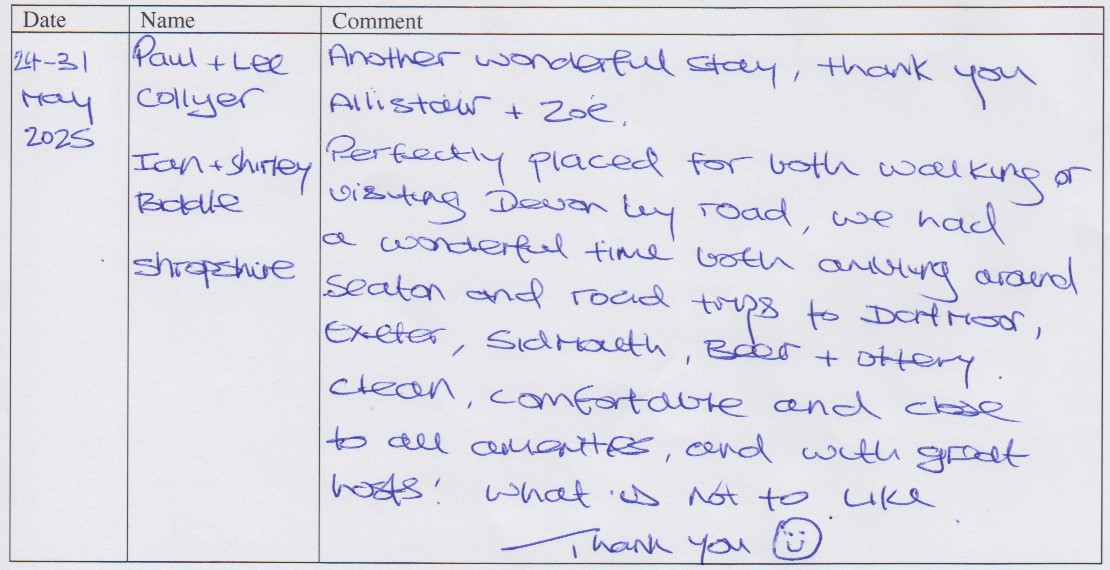 Date Name Comment
24-31 May 2025
Paul + Lee Collyer
Ian + Shirley Biddle
Shropshire
Another wonderful stay, thank you
Allistair + Zoë.
Perfectly placed for both walking or
visiting Devon by road, we had
a wonderful time both ambling around
Seaton and road trips to Dartmoor,
Exeter, Sidmouth, Beer + Ottery.
Clean, comfortable and close
to all amenities, and with great
hosts! What is not to like.
Thank you